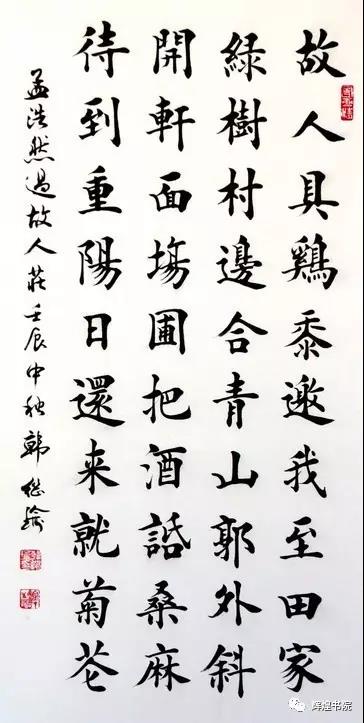 故人具鷄黍邀我至田家
綠樹村邊合青山郭外斜
開軒面塲圃把酒話桑麻
待到重陽日還来就菊花
孟浩然過故人莊壬辰中秋韓
辉煌书院